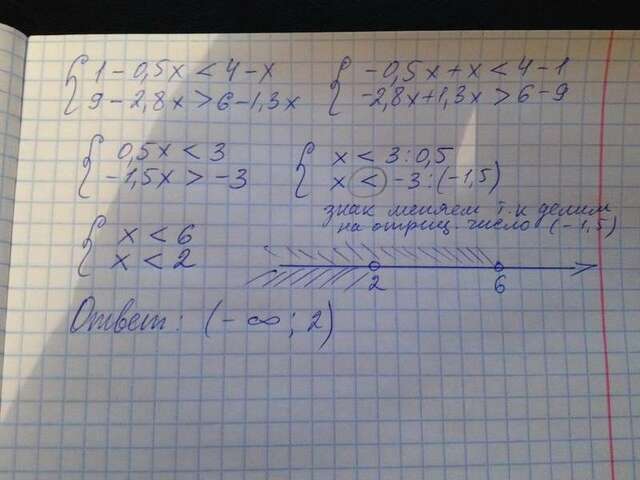 { 1 - 0,5x < 4 - x
9 - 2,8x > 6 - 1,3x
{ -0,5x + x < 4 - 1
-2,8x + 1,3x > 6 - 9
{ 0,5x < 3
-1,5x > -3
{ x < 3 : 0,5
x < -3 : (-1,5)
знак меняем т.к делим
на отриц. число (-1,5)
{ x < 6
x < 2
2 6
Ответ: (-∞; 2)